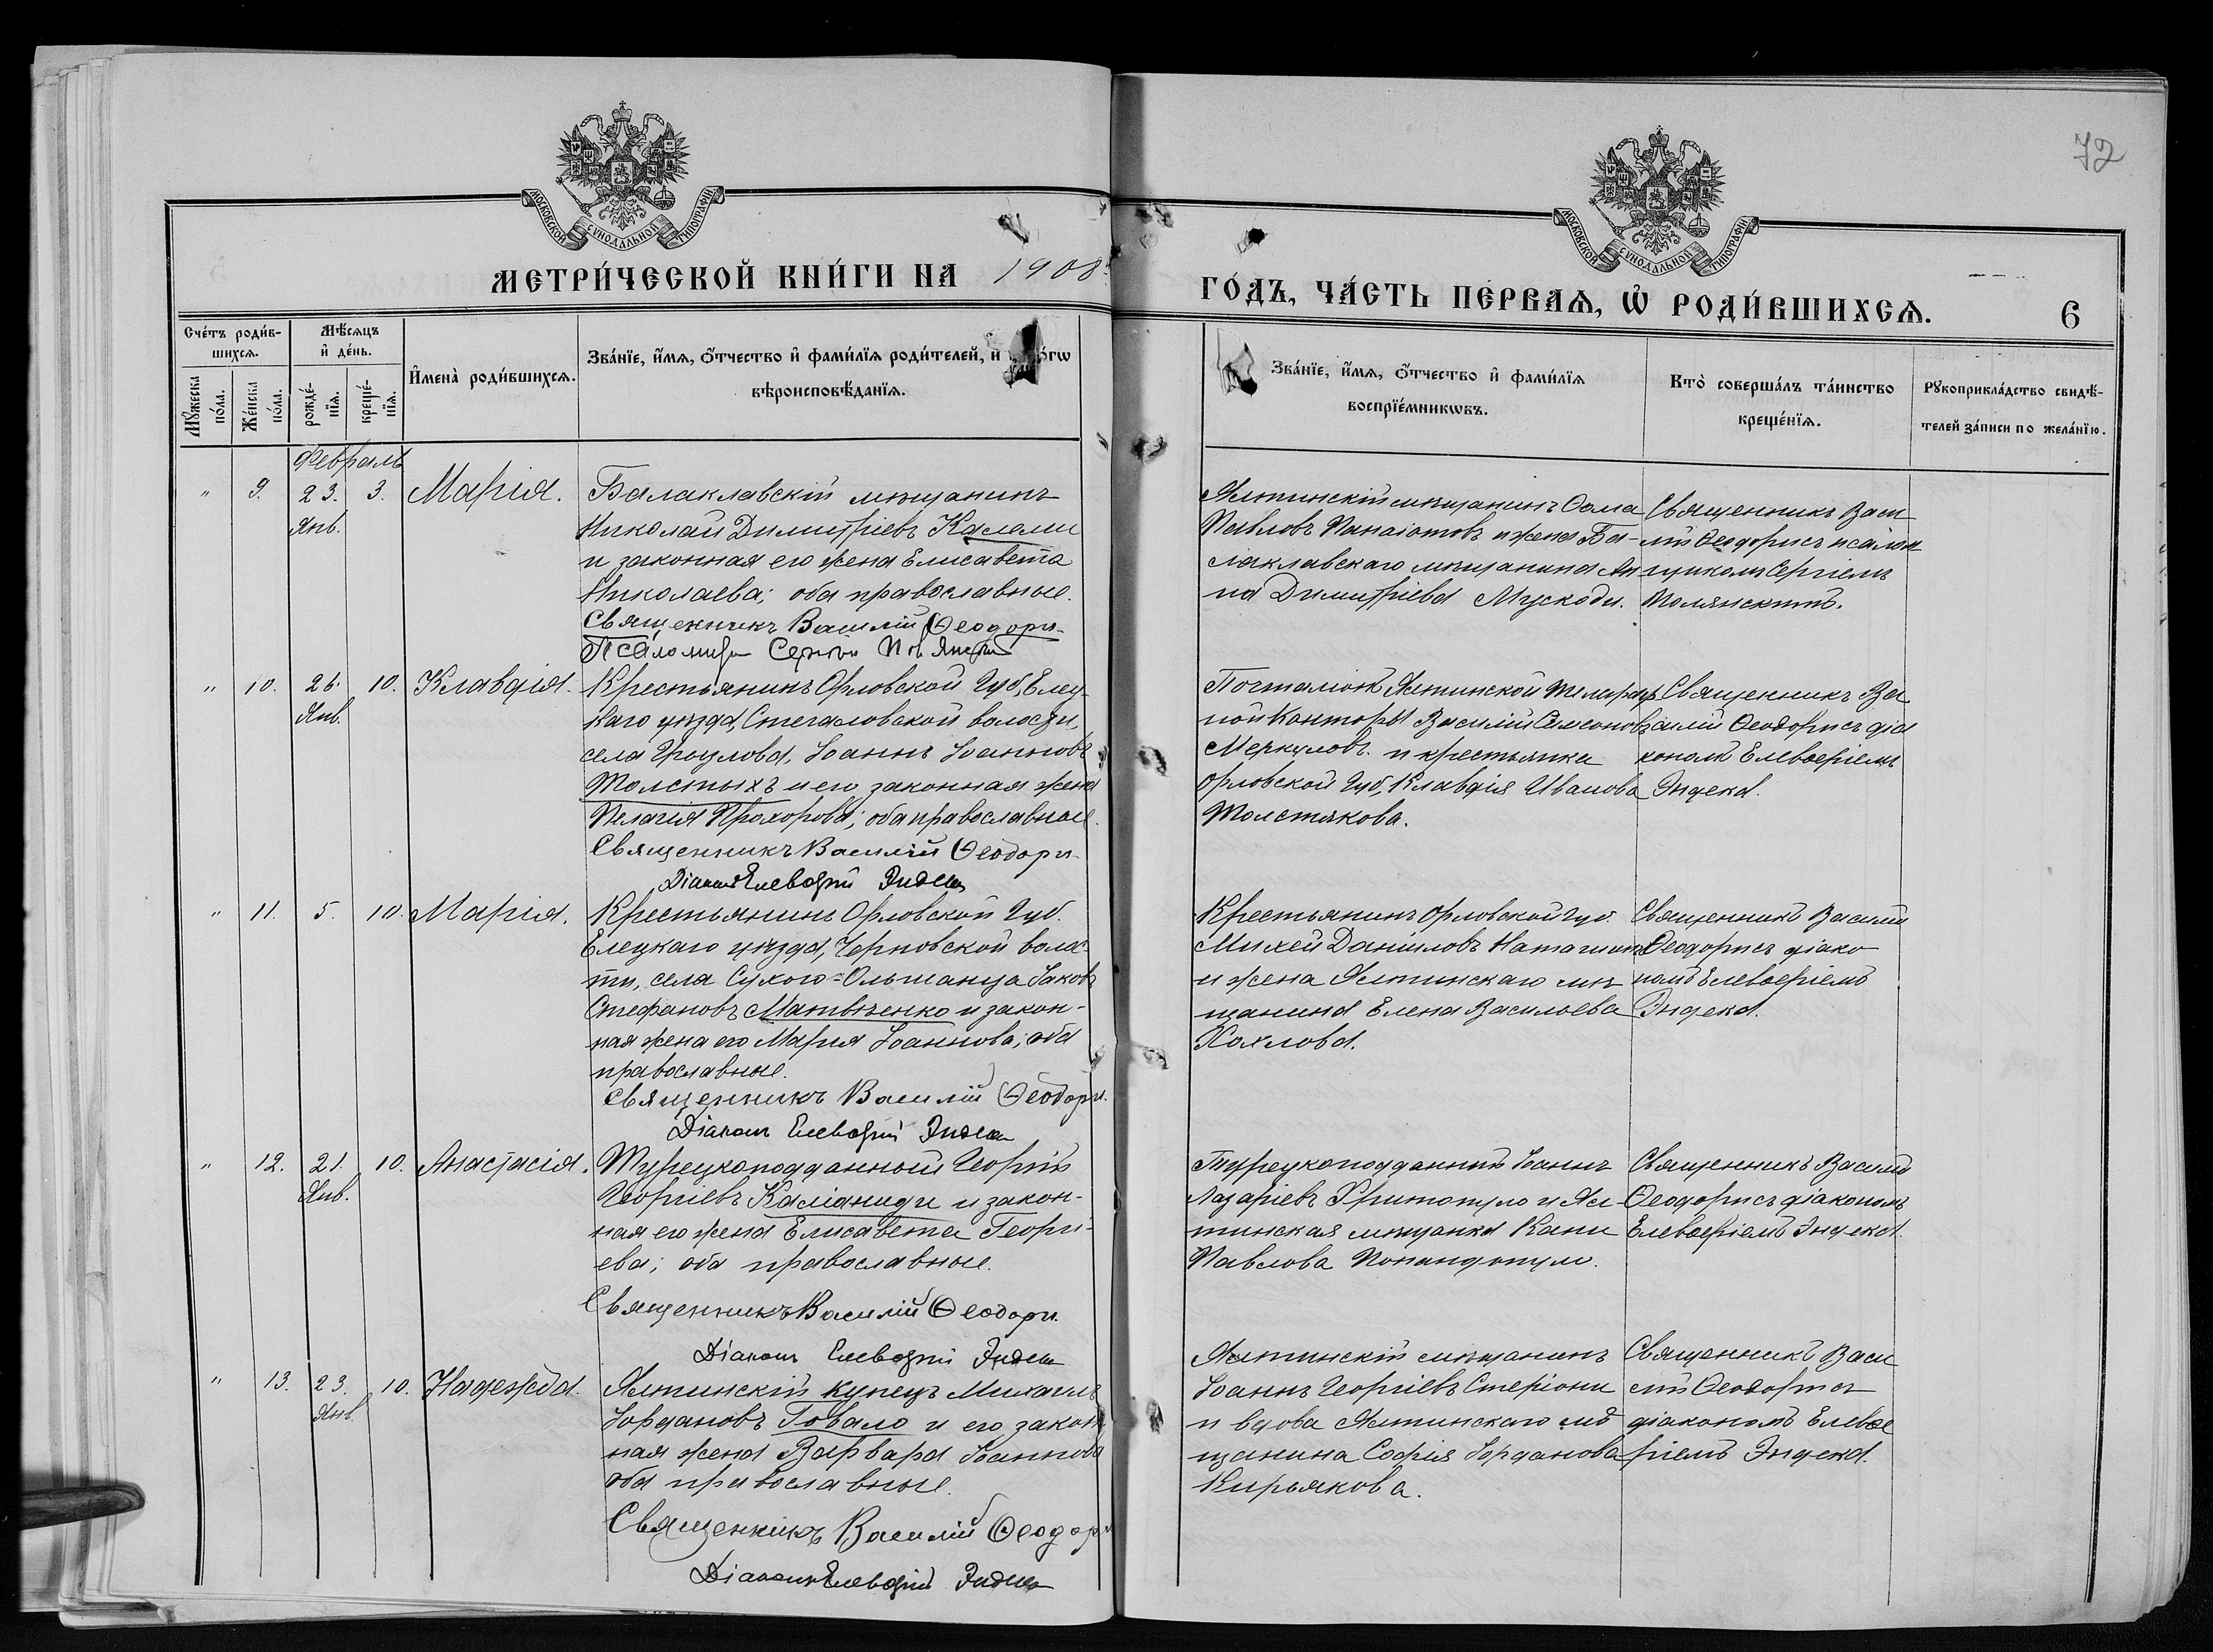 72
МОСКОВСКОЙ СѴНОДАЛЬНОЙ ТИПОГРАФІИ
МОСКОВСКОЙ СѴНОДАЛЬНОЙ ТИПОГРАФІИ
МЕТРИ́ЧЕСКОЙ КНИ́ГИ НА 1908
ГО́ДЪ, ЧА́СТЬ ПЕ́РВАѦ, Ѡ҆ РОДИ́ВШИХСѦ.
6
Сче́тъ роди́в-
шихсѧ.
Мꙋ́жеска
по́ла.
Же́нска
по́ла.
Мѣ́сѧцъ
и҆ де́нь.
рожде́-
нїѧ.
креще́-
нїѧ.
И҆мена̀ роди́вшихсѧ.
Зва́нїе, и҆́мѧ, ѻ҆́тчество и҆ фами́лїѧ роди́телей, и҆
вѣроисповѣ́данїѧ.
Зва́нїе, и҆́мѧ, ѻ҆́тчество и҆ фами́лїѧ
воспрїе́мникѡвъ.
Кто̀ соверша́лъ та́инство
креще́нїѧ.
Рꙋкоприкла́дство свидѣ́-
телей за́писи по жела́нїю.
Февраль
" 9. 23. 3. Марія.
Янв.
Балаклавскій мѣщанинъ
Николай Димитріевъ Калами
и законная его жена Елисавета
Николаева; оба православные.
Священникъ Василій Ѳеодори
Псаломщ Сергѣй
Ялтинскій мѣщанинъ Ѳома
Павловъ Панаіотовъ и жена Ба-
лаклавскаго мѣщанина Ан
на Димитріева Мускоди.
Священникъ Васи
лій Ѳеодори съ псалом
щикомъ Сергіемъ
Полянскимъ.
" 10. 26. 10. Клавдія.
Янв.
Крестьянинъ Орловской Губ, Елец
каго уѣзда, Стегаловской волости,
села Іоаннъ Іоанновъ
Толстыхъ и его законная жена
Пелагія Прохорова; оба православные.
Священникъ Василій Ѳеодори
Діаконъ Елевѳерій Эндека
Почталіонъ Ялтинской Телеграф
ной Конторы Василій Симеоновъ
Меркуловъ. и крестьянка
Орловской Губ, Клавдія Иванова
Толстякова.
Священникъ Ва
силій Ѳеодори съ діа
кономъ Елевѳеріемъ
Эндека.
" 11. 5. 10. Марія.
Крестьянинъ Орловской Губ.
Елецкаго уѣзда, Черновской волос
ти, села Сухого-Ольшанца Іаковъ
Стефановъ Матвѣенко и закон-
ная жена его Марія Іоаннова; оба
православные.
Священникъ Василій Ѳеодори.
Діаконъ Елевѳерій Эндека
Крестьянинъ Орловской Губ.
Михей Даніиловъ
и жена Ялтинскаго мѣ
щанина Елена Васильева
Хохлова.
Священникъ Василій
Ѳеодори съ діако
номъ Елевѳеріемъ
Эндека.
" 12. 21. 10. Анастасія.
Янв.
Турецкоподданный Георгій
Георгіевъ Каліаниди и закон-
ная его жена Елисавета Георгі-
ева; оба православные.
Священникъ Василій Ѳеодори.
Діаконъ Елевѳерій Эндека
Турецкоподданный Іоаннъ
Лазаріевъ и Ял-
тинская мѣщанка
Павлова Попандопуло.
Священникъ Василій
Ѳеодори съ діакономъ
Елевѳеріемъ Эндека.
" 13. 23. 10. Надежда.
Янв.
Ялтинскій купецъ Михаилъ
Іордановъ Говало и его закон
ная жена Варвара Іоаннова
оба православные.
Священникъ Василій Ѳеодори
Діаконъ Елевѳерій Эндека
Ялтинскій мѣщанинъ
Іоаннъ Георгіевъ Стеріони
и вдова Ялтинскаго мѣ
щанина Софія Іорданова
Кирьякова.
Священникъ Васи
лій Ѳеодори съ
діакономъ Елевѳе
ріемъ Эндека.